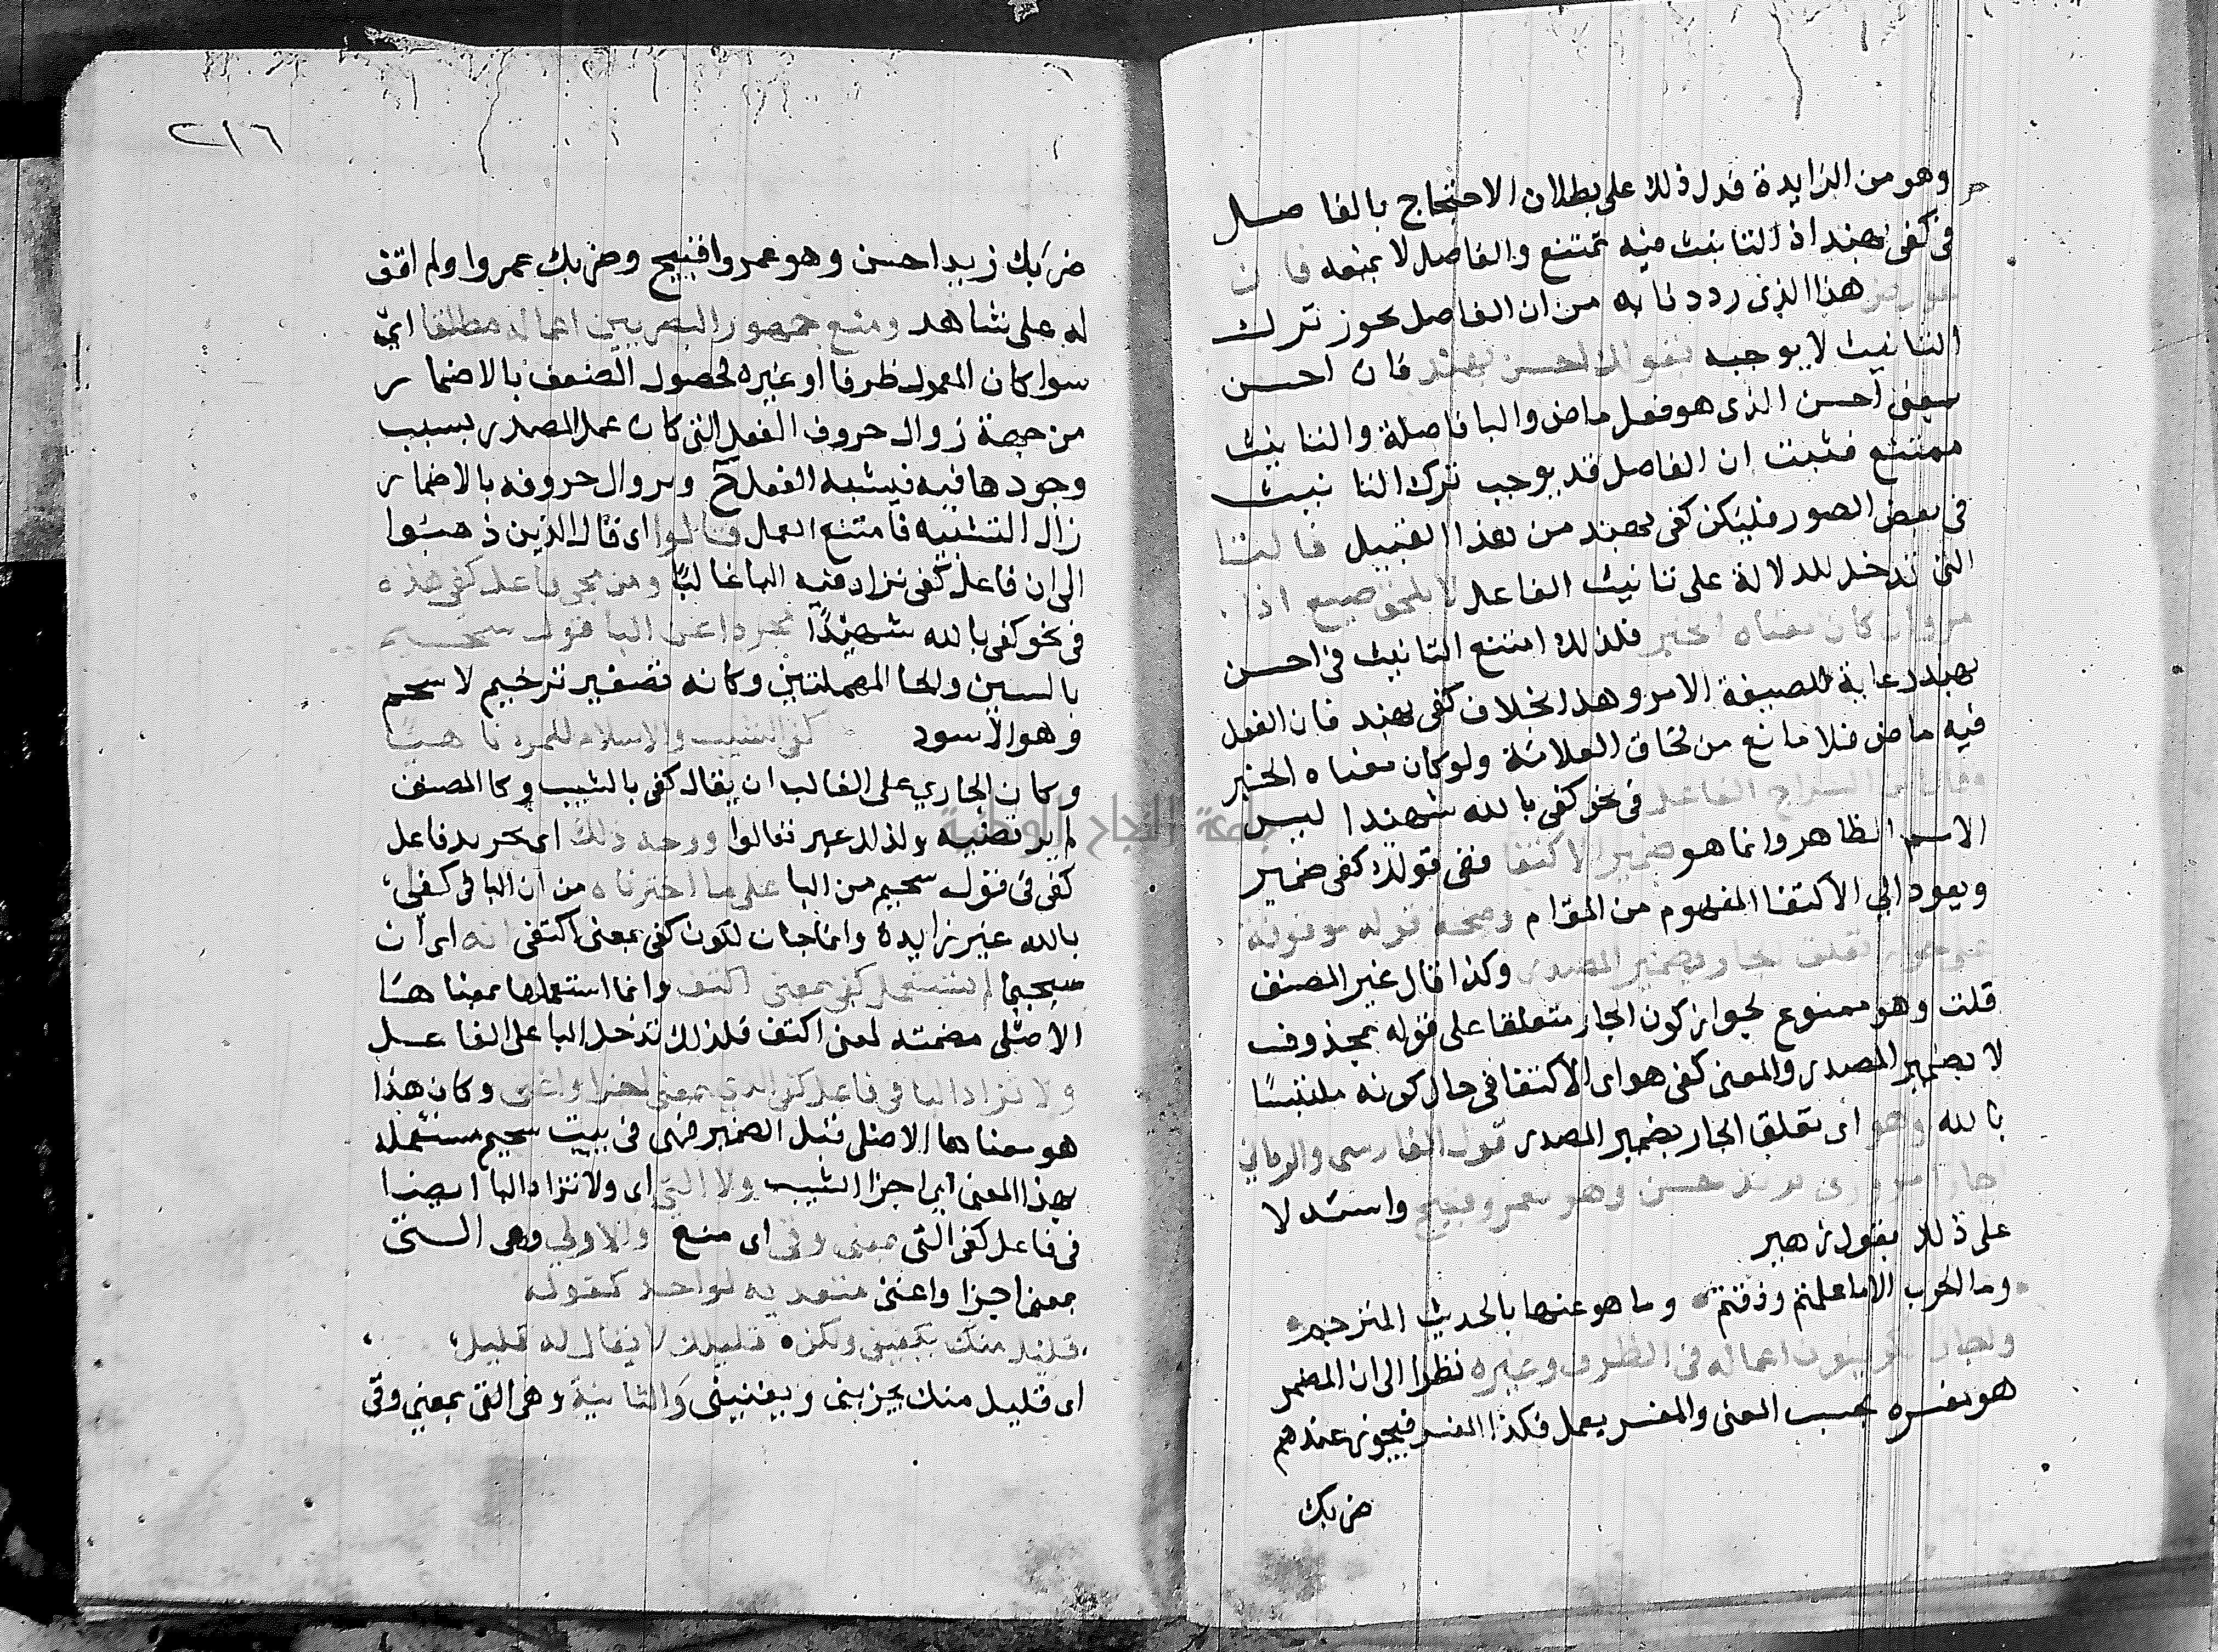 وهو من الزايدة فدل ذلك على بطلان الاحتجاج بالفا صل
فى كفى بهند اذ التانيث فيه ممتنع والفاصل لا يمنعه فان
عورض هذا الذى رددنا به من ان الفاصل يجوز ترك
التانيث لا يوجبه بقولك احسن بهند فان احسن
بمعنى احسن الذى هو فعل ماض والبا فاصلة والتانيث
ممتنع فثبت ان الفاصل قد يوجب ترك التا نيث
فى بعض الصور فليكن كفى بهند من هذا القبيل فالتا
التى تدخل للدلالة على تانيث الفاعل لا تلحق صيغ اذا
مر وان كان معناه الخبر فلذلك امتنع التانيث فى احسن
بهند رعاية لصيغة الامر وهذا بخلاف كفى بهند فان الفعل
فيه ماض فلا مانع من لحاق العلامة ولو كان معناه الخبر
وقال بن السراج الفاعل فى نحو كفى بالله شهيدا ليس
الاسم الظاهر وانما هو ضمير الاكتفا ففى قولك كفى ضمير
ويعود الى الاكتفا المفهوم من المقام وصحة قوله موقوفة
على جواز تعلق الجار بضمير المصدر وكذا قال غير المصنف
قلت وهو ممنوع لجواز كون الجار متعلقا على قوله بمحذوف
لا بضمير المصدر والمعنى كفى هو اى الاكتفا فى حال كونه ملتبسًا
بالله وهو اى تعلق الجار بضمير المصدر قول الفارسى والرمانى
جازا مرورى بزيد حسن وهو بعمرو قبيح واستدلا
على ذلك بقول زهير
وما الحرب الا ما علمتم وذقتم وما هو عنها بالحديث المترجم
واجاز الكوفيون اعماله فى الظرف وغيره نظرا الى ان المضمر
هو مفسره بحسب المعنى والمفسر يعمل فكذا المفسر فيجوز عندهم
ضربك
٢١٦
ضربك زيدا حسن وهو عمروا قبيح وضربك عمروا ولم اقف
له على شاهد ومنع جمهور البصريين اعماله مطلقا اى
سوا كان المعمول ظرفا او غيره لحصول الضعف بالاضمار
من جهة زوال حروف الفعل التى كان عمل المصدر بسبب
وجودها فيه فيشبه الفعل ح وبزوال حروفه بالاضمار
زال التشبيه فامتنع العمل قالوا اى قال الذين ذهبوا
الى ان فاعل كفى تزاد فيه البا غالبًا ومن مجى فاعل كفى هذه
فى نحو كفى بالله شهيدًا مجردا عن البا قول سحيم
بالسين والحا المهملتين وكانه تصغير ترخيم لا سحم
وهو الاسود كفى الشيب والاسلام للمرء ناهيًا
وكان الجاري على الغالب ان يقال كفى بالشيب وكا المصنف
لم يرتضيه ولذلك عبر بقالوا ووجه ذلك اى تجريد فاعل
كفى فى قول سحيم من البا على ما اخترناه من ان البا فى كفى
بالله غير زايدة وانما جات لكون كفى بمعنى اكتفى انه اى ان
سحيما لم يستعمل كفى بمعنى اكتف وانما استعملها بمعناها
الاصلى مضمنه لمعنى اكتف فلذلك تدخل البا على الفاعل
ولا تزاد البا فى فاعل كفى الذى بمعنى اجزا واغنى وكان هذا
هو معناها الاصلى قبل الضمير فهى فى بيت سحيم مستعمله
بهذا المعنى اى اجزا الشيب ولا التى اى ولا تزاد البا ايضا
فى فاعل كفى التى بمعنى وقى اى منع والاولى وهى التى
بمعنى اجزا واغنى متعديه لواحد كقوله
قليل منك يكفينى ولكن قليلك لا يقال له قليل
اى قليل منك يجزينى ويغنينى والثانية وهى التى بمعنى وقى
جامعة النجاح الوطنية